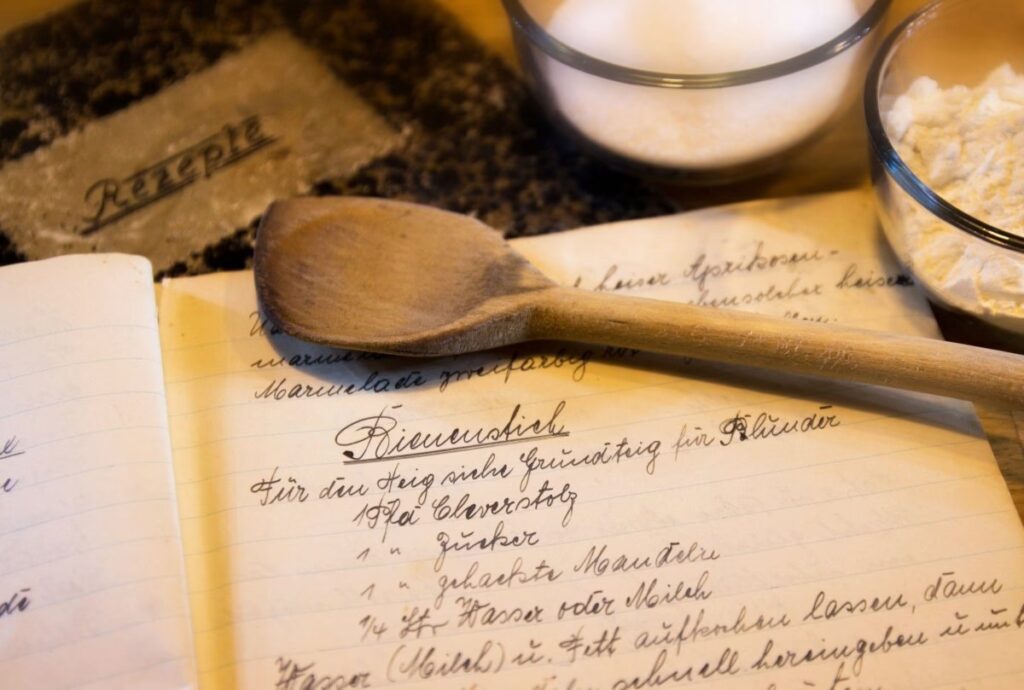 Rezepte
heiser Aprikosen-
ebensolcher heiser
Marmelade zweifarbig
Bienenstich
Für den Teig siehe Grundteig für Plunder
1 Pfd Cleverstolz
1 " Zucker
1 " gehackte Mandeln
1/4 Ltr Wasser oder Milch
Wasser (Milch) u. Fett aufkochen lassen, dann
schnell hereingeben u